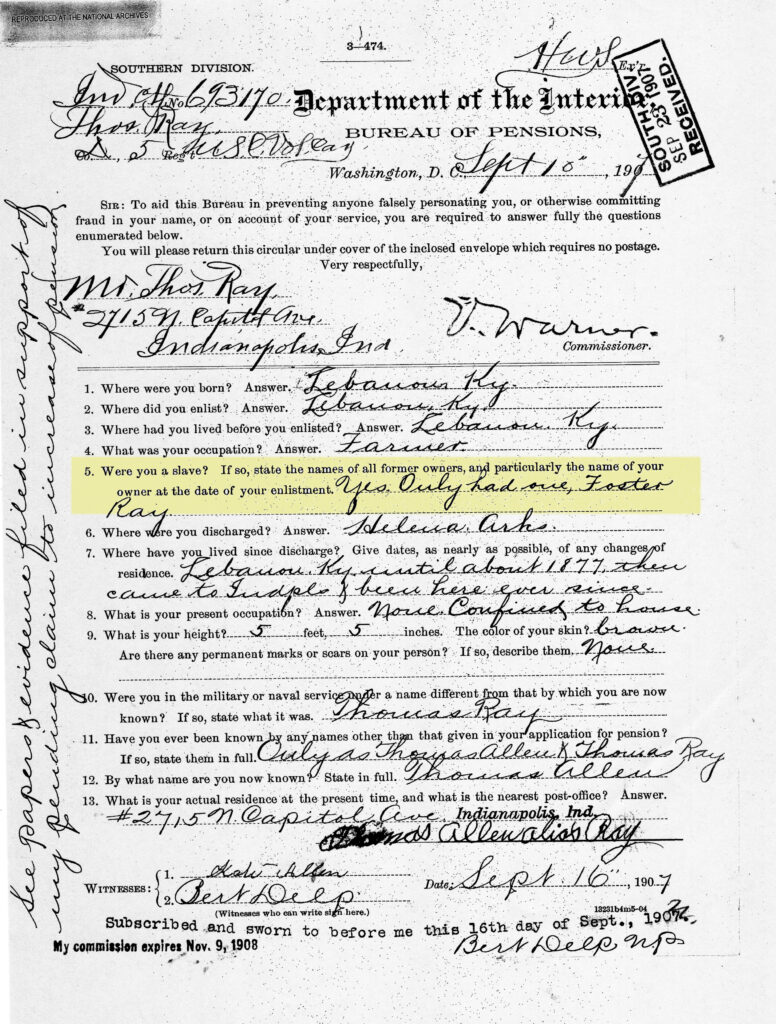 REPRODUCED AT THE NATIONAL ARCHIVES
3-474.
SOUTHERN DIVISION.
HWS Ex'r.
SOUTH DIV.
SEP 23 1907
RECEIVED.
Ind Ctf. No 693170.
Department of the Interior
Thos. Ray
BUREAU OF PENSIONS,
Co. , 5 Reg't U.S.C. Vol Cav
Washington, D. C., Sept 10", 1907
SIR: To aid this Bureau in preventing anyone falsely personating you, or otherwise committing
fraud in your name, or on account of your service, you are required to answer fully the questions
enumerated below.
You will please return this circular under cover of the inclosed envelope which requires no postage.
Very respectfully,
Mr. Thos. Ray,
#2715 N. Capitol Ave.
Indianapolis, Ind
V. Warner.
Commissioner.
1. Where were you born? Answer. Lebanon, Ky.
2. Where did you enlist? Answer. Lebanon, Ky.
3. Where had you lived before you enlisted? Answer. Lebanon, Ky.
4. What was your occupation? Answer. Farmer.
5. Were you a slave? If so, state the names of all former owners, and particularly the name of your
owner at the date of your enlistment. Yes. Only had one, Foster
Ray.
6. Where were you discharged? Answer. Helena, Arks.
7. Where have you lived since discharge? Give dates, as nearly as possible, of any changes of
residence. Lebanon, Ky until about 1877, then
came to Indpls & been here ever since.
8. What is your present occupation? Answer. None. Confined to house.
9. What is your height? 5 feet, 5 inches. The color of your skin? brown.
Are there any permanent marks or scars on your person? If so, describe them. None.
10. Were you in the military or naval service under a name different from that by which you are now
known? If so, state what it was. Thomas Ray
11. Have you ever been known by any names other than that given in your application for pension?
If so, state them in full. Only as Thomas Allen & Thomas Ray
12. By what name are you now known? State in full. Thomas Allen
13. What is your actual residence at the present time, and what is the nearest post-office? Answer.
#2715 N Capitol Ave. Indianapolis, Ind.
Thomas Allen alias Ray
WITNESSES: 1. Allen
2. Bert Delp
(Witnesses who can write sign here.)
Date: Sept. 16", 1907
13231b4m5-04
Subscribed and sworn to before me this 16th day of Sept., 1907.
My commission expires Nov. 9, 1908
Bert Delp NP
See papers & evidence filed in support of
my pending claim to increase of pension